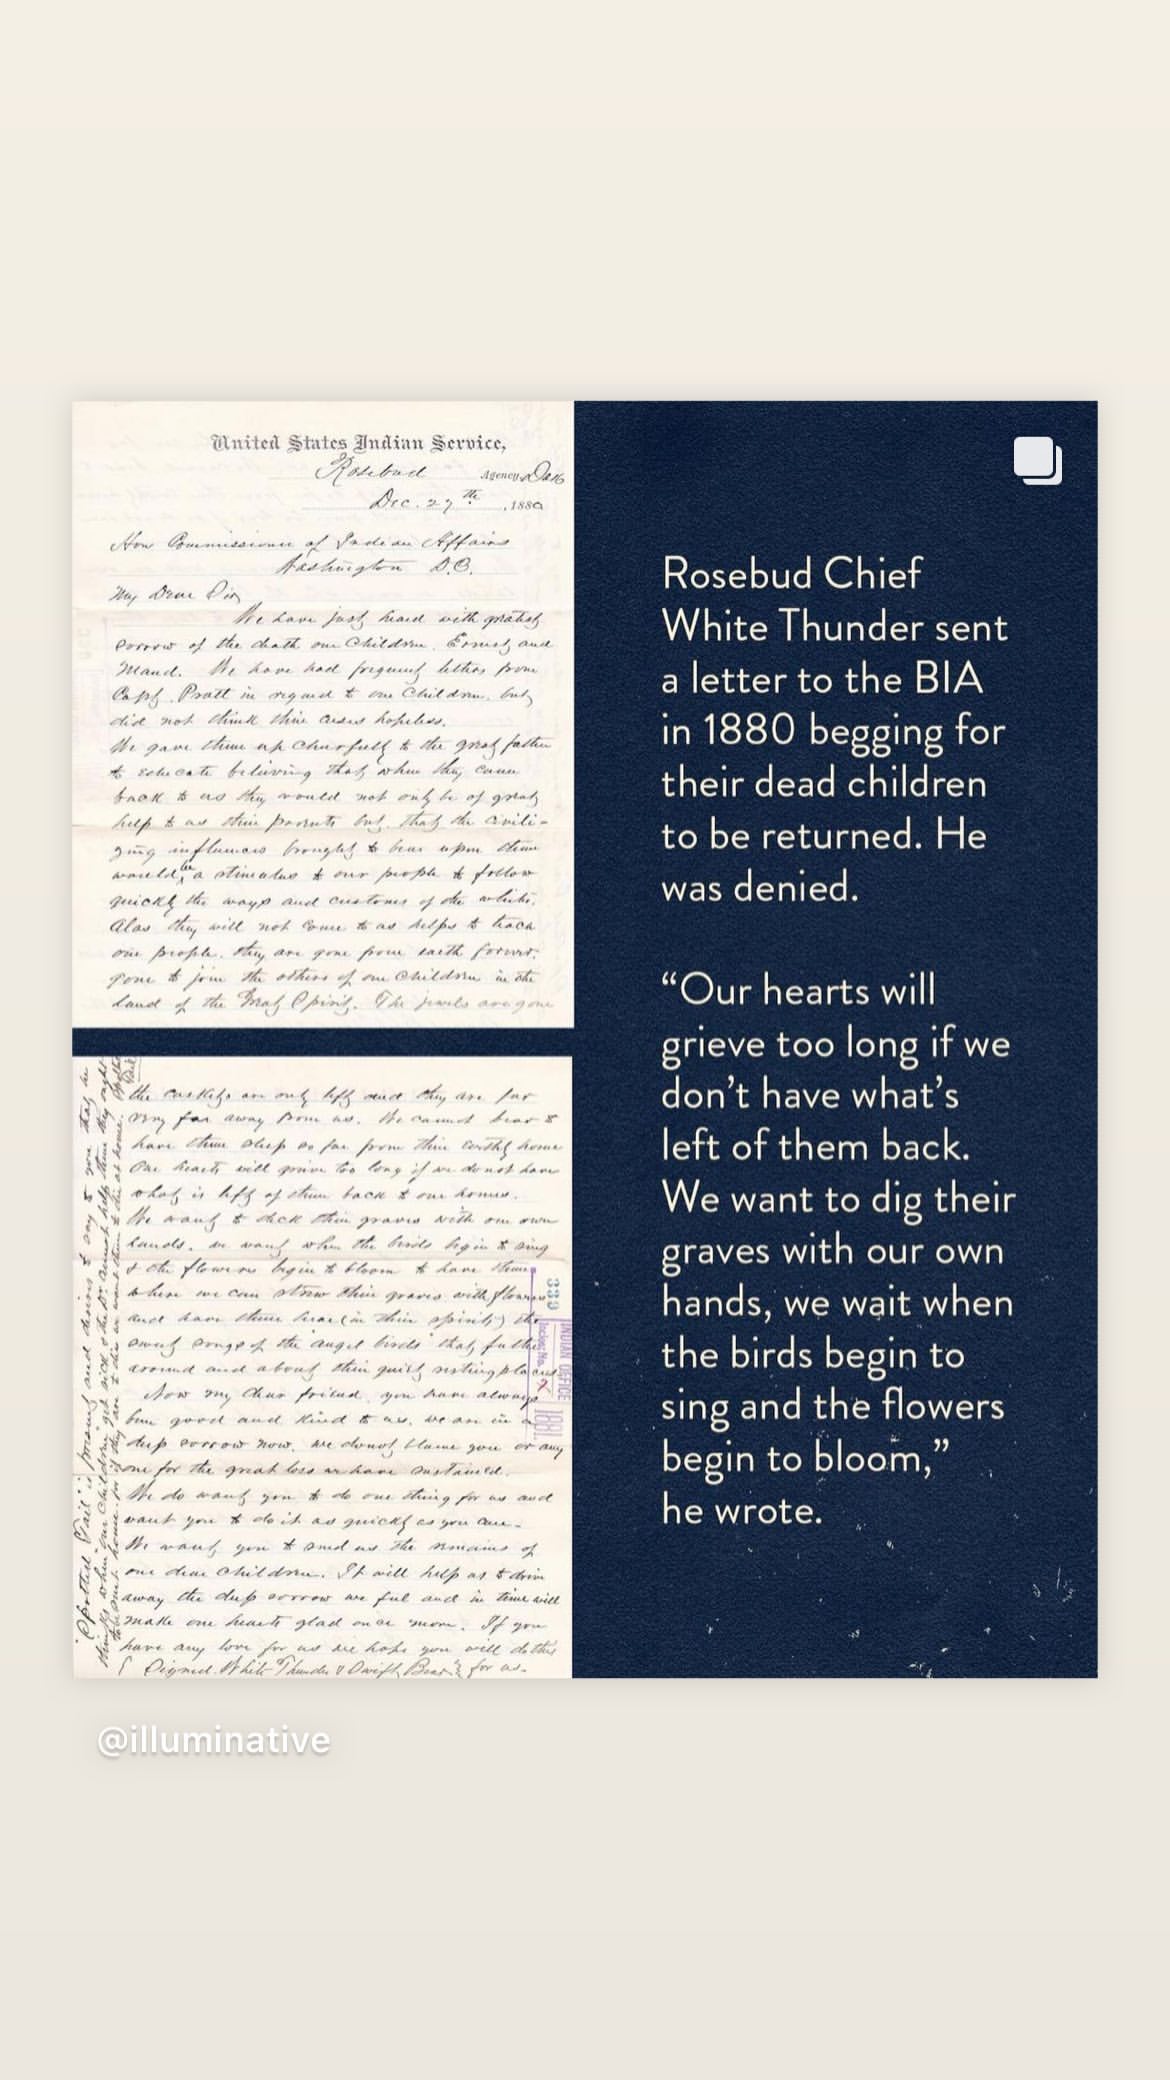 United States Indian Service,
Rosebud Agency, Dak
Dec. 27th, 1880
Hon Commissioner of Indian Affairs
Washington D.C.
My Dear Sir
We have just heard with great
sorrow of the death our Children. Ernest and
Maud. We have had frequent letters from
Capt. Pratt in regard to our Children. but
did not think their cases hopeless.
We gave them up cheerfully to the great father
to educate believing that when they came
back to us they would not only be of great
help to us their parents but. that the civili-
zing influences brought to bear upon them
would be a stimulus to our people to follow
quickly the ways and customs of the whites.
Alas they will not come to us helps to teach
our people. they are gone from earth forever.
gone to join the others of our Children in the
land of the Great Spirit. The jewels are gone
the caskets are only left and they are far
very far away from us. We cannot bear to
have them sleep so far from their earthly home
Our hearts will grieve too long if we do not have
what is left of them back to our homes.
We want to deck their graves with our own
hands. we want when the birds begin to sing
& the flowers begin to bloom to have them
where we can strew their graves with flowers
and have them hear (in their spirits) the
sweet songs of the "angel birds" that
around and about their quiet resting places
Now my dear friend. you have always
been good and kind to us. we are in a
deep sorrow now. we do not blame you or any
one for the great loss we have sustained.
We do want you to do one thing for us and
want you to do it as quickly as you can.
We want you to send us the remains of
our dear Children. It will help us to drive
away the deep sorrow we feel and in time will
make our hearts glad once more. If you
have any love for us we hope you will do this
Signed. White Thunder & Swift Bear for us.
"Spotted Tail" is present and desires to say to you that he
thinks when our Children get sick & the Dr. cannot help them they ought
to be sent home. for if they are to die we want them to die at home.
INDIAN OFFICE
1881
Rosebud Chief
White Thunder sent
a letter to the BIA
in 1880 begging for
their dead children
to be returned. He
was denied.
“Our hearts will
grieve too long if we
don’t have what’s
left of them back.
We want to dig their
graves with our own
hands, we wait when
the birds begin to
sing and the flowers
begin to bloom,”
he wrote.
@illuminative